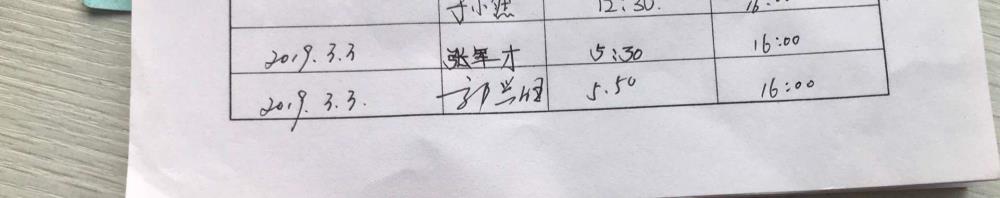 于小燃 12:30. 16:00
2019.3.3 张军才 15:30 16:00
2019.3.3. 郭兴 5.50 16:00